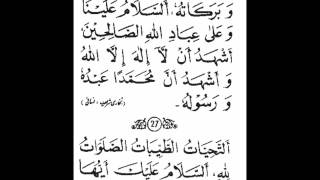 وَ بَرَكَاتُهٗ، اَلسَّلَامُ عَلَيْنَا
وَ عَلٰى عِبَادِ اللّٰهِ الصَّالِحِيْنَ
اَشْهَدُ اَنْ لَّا اِلٰهَ اِلَّا اللّٰهُ
وَ اَشْهَدُ اَنَّ مُحَمَّدًا عَبْدُهٗ
وَ رَسُوْلُهٗ۔ (بخاری شریف، نسائی)
27
اَلتَّحِيَّاتُ الطَّيِّبَاتُ الصَّلَوَاتُ
لِلّٰهِ، اَلسَّلَامُ عَلَيْكَ اَيُّهَا